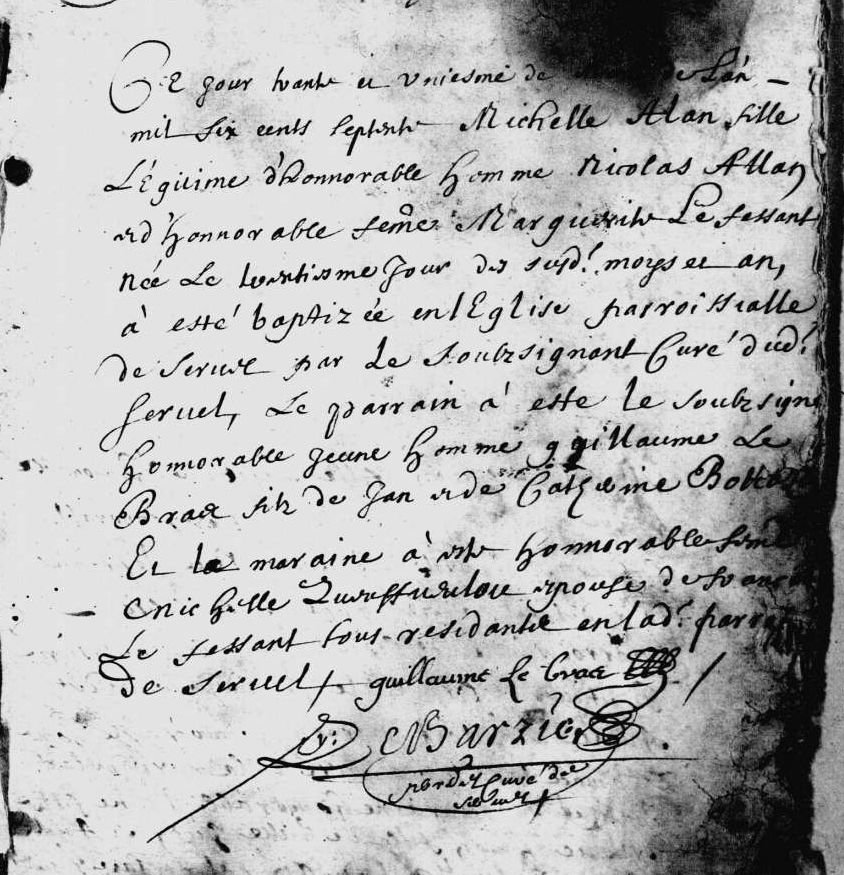 Ce jour trante et uniesme de de L'an
mil six cents septente Michelle Alan fille
Légitime d'honnorable homme Nicolas Allan
et d'honnorable feme Marguerite Le fessant
née Le trentiesme Jour des susd. moys et an,
à esté baptizée en l'Eglise parroissialle
de Servel par Le Soubzsignant Curé dud.
Servel, Le parrain à esté le soubzsigné
honnorable jeune homme guillaume Le
Braz filz de Jan et de Catherine
Et la maraine à esté honnorable feme
Michelle epouse de
Le fessant tous residants en lad. parr
de Servel guillaume Le braz
Y: Barzic
Curé de
Servel